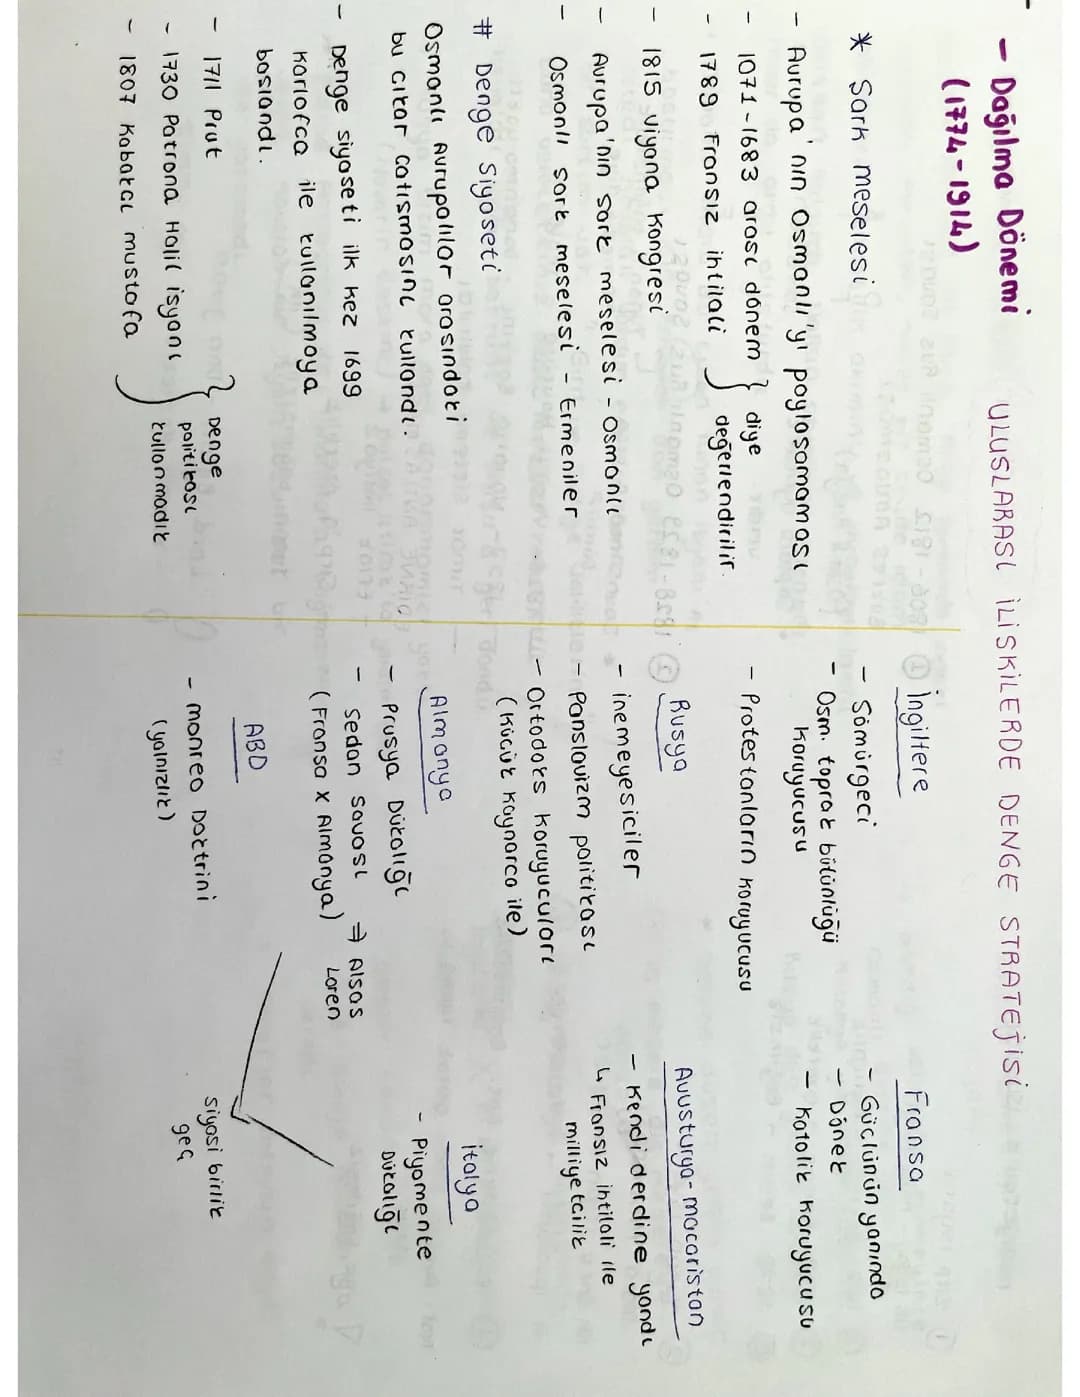 - Dağılma Dönemi
(1774-1914)
ULUSLARASI İLİSKİLERDE DENGE STRATEJİSİ
* Sark meselesi
- Avrupa'nın Osmanlı'yı paylasamaması
- 1071-1683 arası dönem } diye
- 1789 Fransız ihtilali } değerlendirilir.
- 1815 Viyana Kongresi
- Avrupa'nın sark meselesi - Osmanlı
- Osmanlı sark meselesi - Ermeniler
# Denge Siyaseti
Osmanlı Avrupalılar arasındaki
bu cıkar catısmasını kullandı.
- Denge siyaseti ilk kez 1699
Karlofca ile kullanılmaya
baslandı.
- 1711 Prut
- 1730 Patrona Halil isyanı
- 1807 Kabakcı mustafa
} Denge
politikası
kullanmadık
İngiltere
- Sömürgeci
- Osm. toprak bütünlüğü
koruyucusu
- Protestanların koruyucusu
Fransa
- Güclünün yanında
- Dönek
- Katolik Koruyucusu
Rusya
- inemeyesiciler
- Panslavizm politikası
- Ortodoks koruyucuları
(Kücük Kaynarca ile)
Avusturya-macaristan
- Kendi derdine yandı
↳ Fransız ihtilali ile
milliyetcilik
Almanya
- Prusya Dükalığı
- Sedan Savası ⇒ Alsas
Loren
(Fransa x Almanya)
İtalya
- Piyamente
Dükalığı
siyasi birlik
geç
ABD
- monreo Doktrini
(yalnızlık)